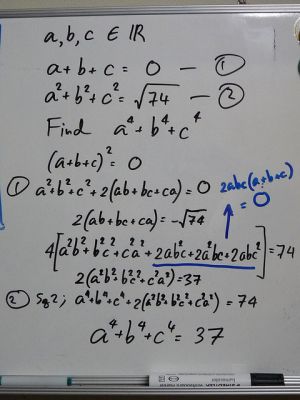 a, b, c ∈ ℝ
a + b + c = 0 — ①
a² + b² + c² = √74 — ②
Find a⁴ + b⁴ + c⁴
(a+b+c)² = 0
① a² + b² + c² + 2(ab+bc+ca) = 0
2abc(a+b+c) = 0
2(ab+bc+ca) = -√74
4[a²b² + b²c² + c²a² + 2ab²c + 2a²bc + 2abc²] = 74
2(a²b² + b²c² + c²a²) = 37
② Sq 2; a⁴ + b⁴ + c⁴ + 2(a²b² + b²c² + c²a²) = 74
a⁴ + b⁴ + c⁴ = 37